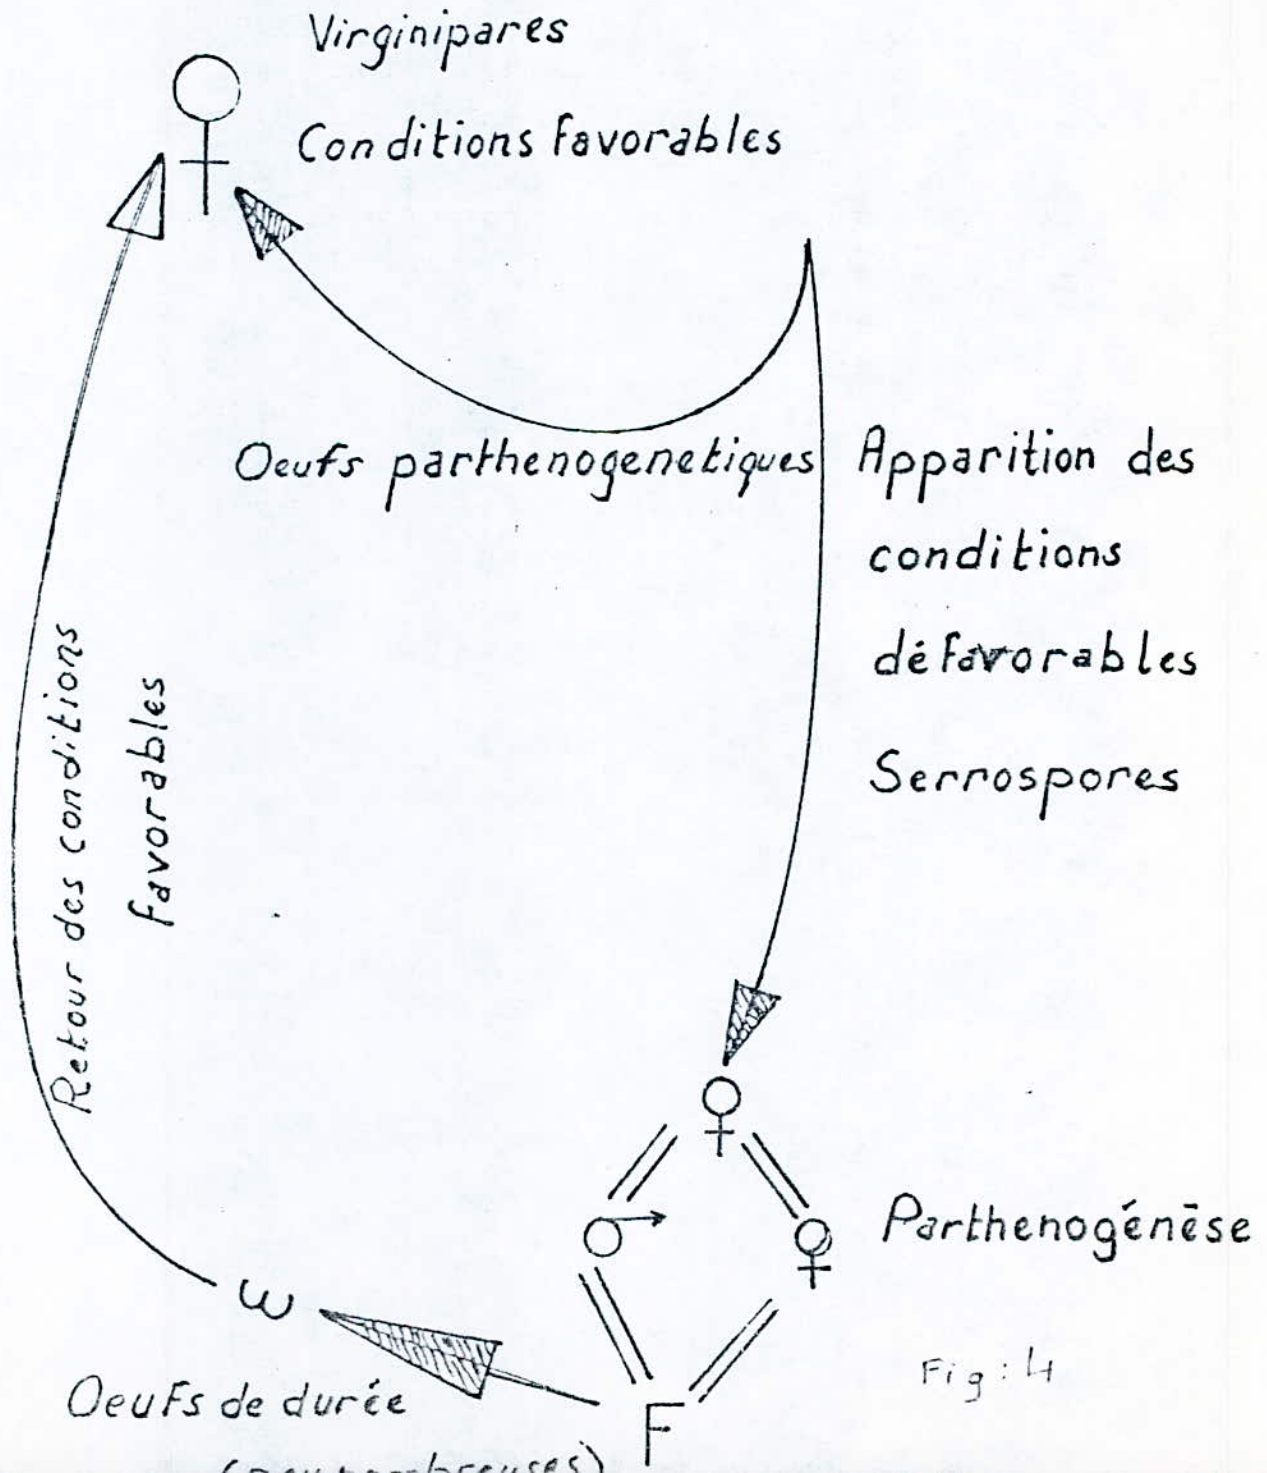 Virginipares
Conditions favorables
Oeufs parthenogenetiques
Apparition des
conditions
défavorables
Serrospores
Retour des conditions
favorables
Parthenogénēse
ω
F
Fig : 4
Oeufs de durée